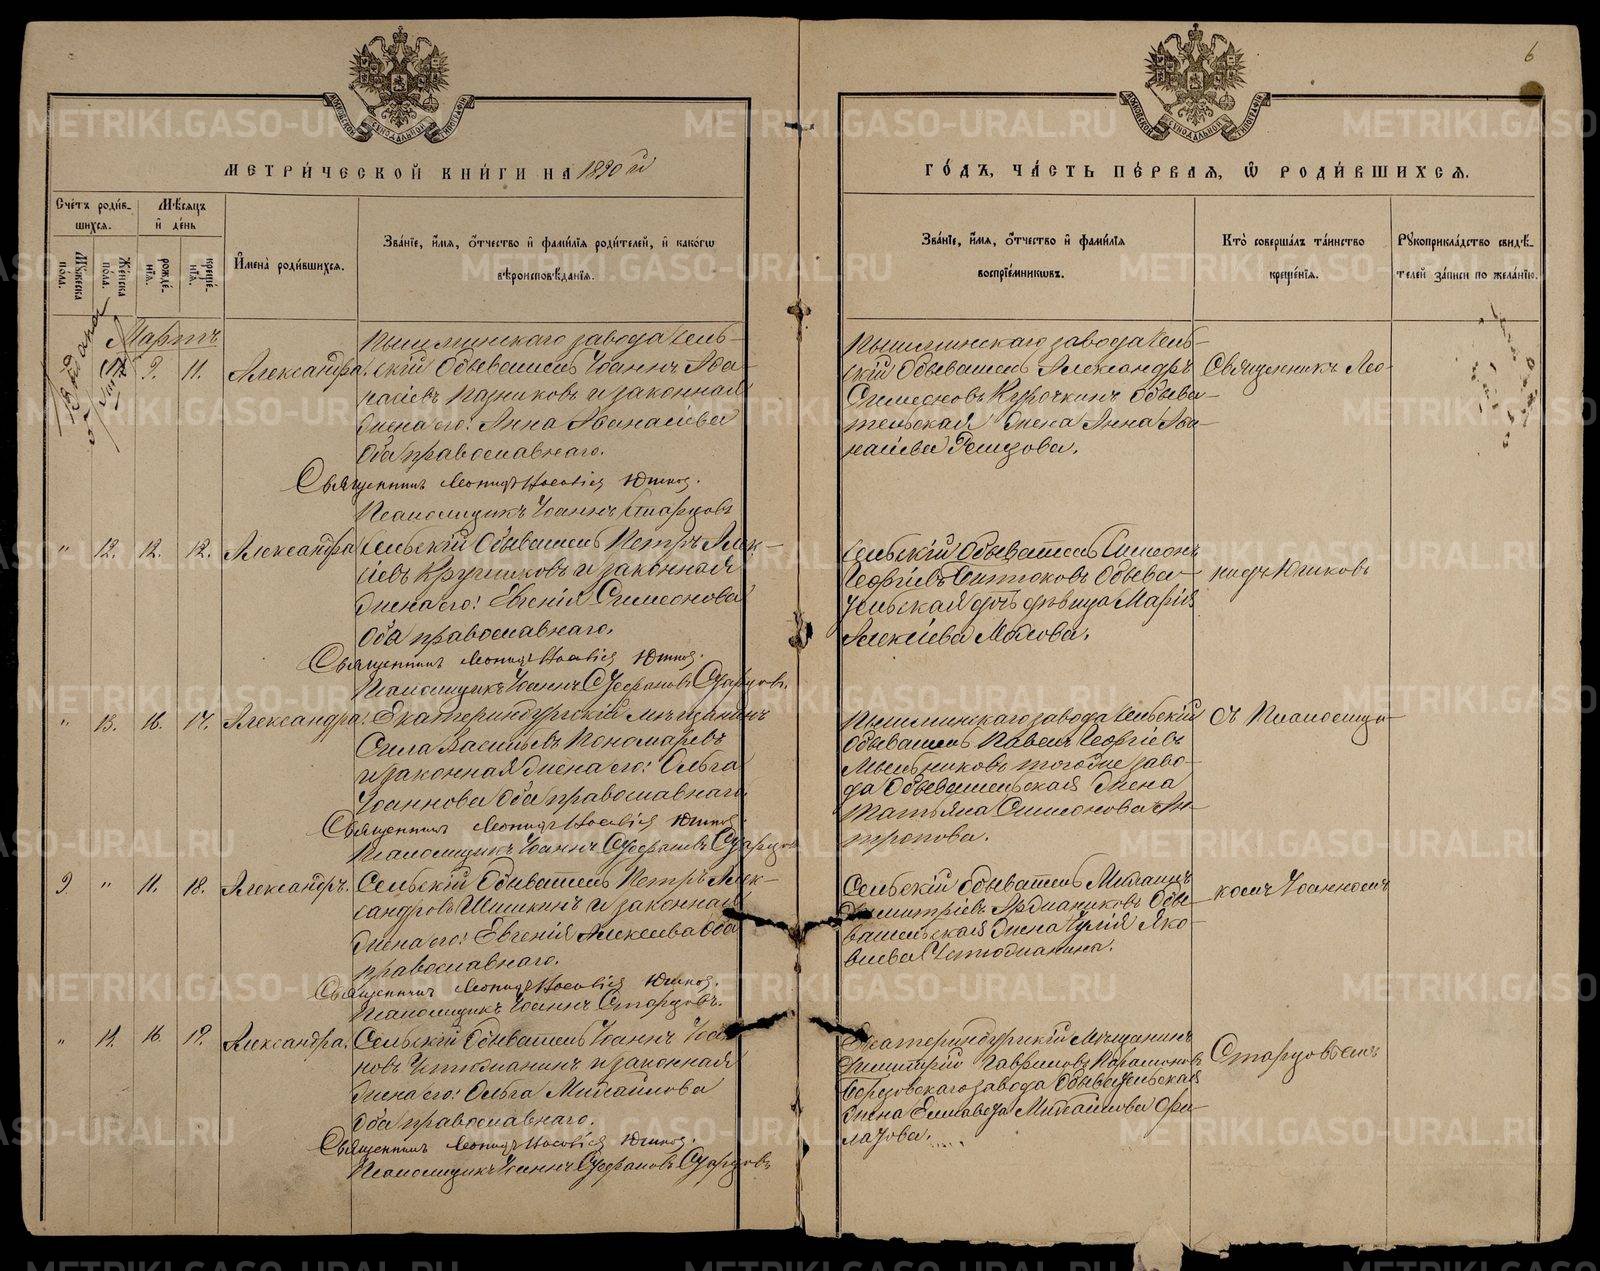 6
МОСКОВСКОЙ СѴНОДАЛЬНОЙ ТИПОГРАФІИ
МОСКОВСКОЙ СѴНОДАЛЬНОЙ ТИПОГРАФІИ
МЕТРИ́ЧЕСКОЙ КНИ́ГИ НА 1890 й
ГО́ДЪ, ЧА́СТЬ ПЕ́РВАѦ, Ѡ РОДИ́ВШИХСѦ.
Сче́тъ роди́в-
шихсѧ.
Мꙋжеска пола.
Же́нска пола.
Мѣ́сѧцъ
и҆ де́нь
рожде́-
нїѧ.
креще́-
нїѧ.
И҆мена̀ роди́вшихсѧ.
Зва́нїе, и҆́мѧ, ѻ҆́тчество и҆ фами́лїѧ роди́телей, и҆ како́гѡ
вѣроисповѣ́данїѧ.
Зва́нїе, и҆́мѧ, ѻ҆́тчество и҆ фами́лїѧ
воспрїе́мникѡвъ.
Кто̀ соверша́лъ та́инство
креще́нїѧ.
Рꙋкоприкла́дство свидѣ́-
телей за́писи по жела́нїю.
Мартъ
9. 11. Александра.
Пышминскаго завода сель-
скій обыватель Іоаннъ Аѳа-
насіевъ и законная
жена его: Анна Аѳанасіева
оба православнаго.
Священникъ Леонидъ Юшков.
Псаломщикъ Іоаннъ Старцовъ
Пышминскаго завода сель-
скій обыватель Александръ
Симеоновъ Курочкинъ обыва-
тельская жена Анна Аѳа-
насіева
Священникъ Лео-
" 12. 12. 12. Александра
Сельскій обыватель Петръ Алек-
сіевъ и законная
жена его: Евгенія Симеонова
оба православнаго.
Священникъ Леонидъ Юшков.
Псаломщикъ Іоаннъ Стефановъ Старцовъ.
Сельскій обыватель Симеонъ
Георгіевъ обыва-
тельская дочь дѣвица Марія
Алексіева
нидъ Юшковъ
" 13. 16. 17. Александра.
Екатеринбургскій мѣщанинъ
Сила Васильевъ Пономаревъ
и законная жена его: Ольга
Іоаннова оба православнаго
Священникъ Леонидъ Юшков.
Псаломщикъ Іоаннъ Стефановъ Старцовъ
Пышминскаго завода сельскій
обыватель Павелъ Георгіевъ
Мыльниковъ того же заво-
да обывательская жена
Татьяна Симеонова Ан-
тропова.
съ Псаломщи-
9. " 11. 18. Александръ.
Сельскій обыватель Петръ Алек-
сандровъ Шишкинъ и законная
жена его: Евгенія Алексеева оба
православнаго.
Священникъ Леонидъ Юшков.
Псаломщикъ Іоаннъ Старцовъ.
Сельскій обыватель Михаилъ
Димитріевъ обы-
вательская жена Юлія Яко-
влева Устюжанина.
комъ Іоанномъ
" 14. 16. 19. Александра.
Сельскій обыватель Іоаннъ Іоан-
новъ Устюжанинъ и законная
жена его: Ольга Михаилова
оба православнаго.
Священникъ Леонидъ Юшков.
Псаломщикъ Іоаннъ Стефановъ Старцовъ
Екатеринбургскій мѣщанинъ
Димитрій Гавриловъ
завода обывательская
жена Елисавета Михаилова Фи-
латова.
Старцовымъ
METRIKI.GASO-URAL.RU